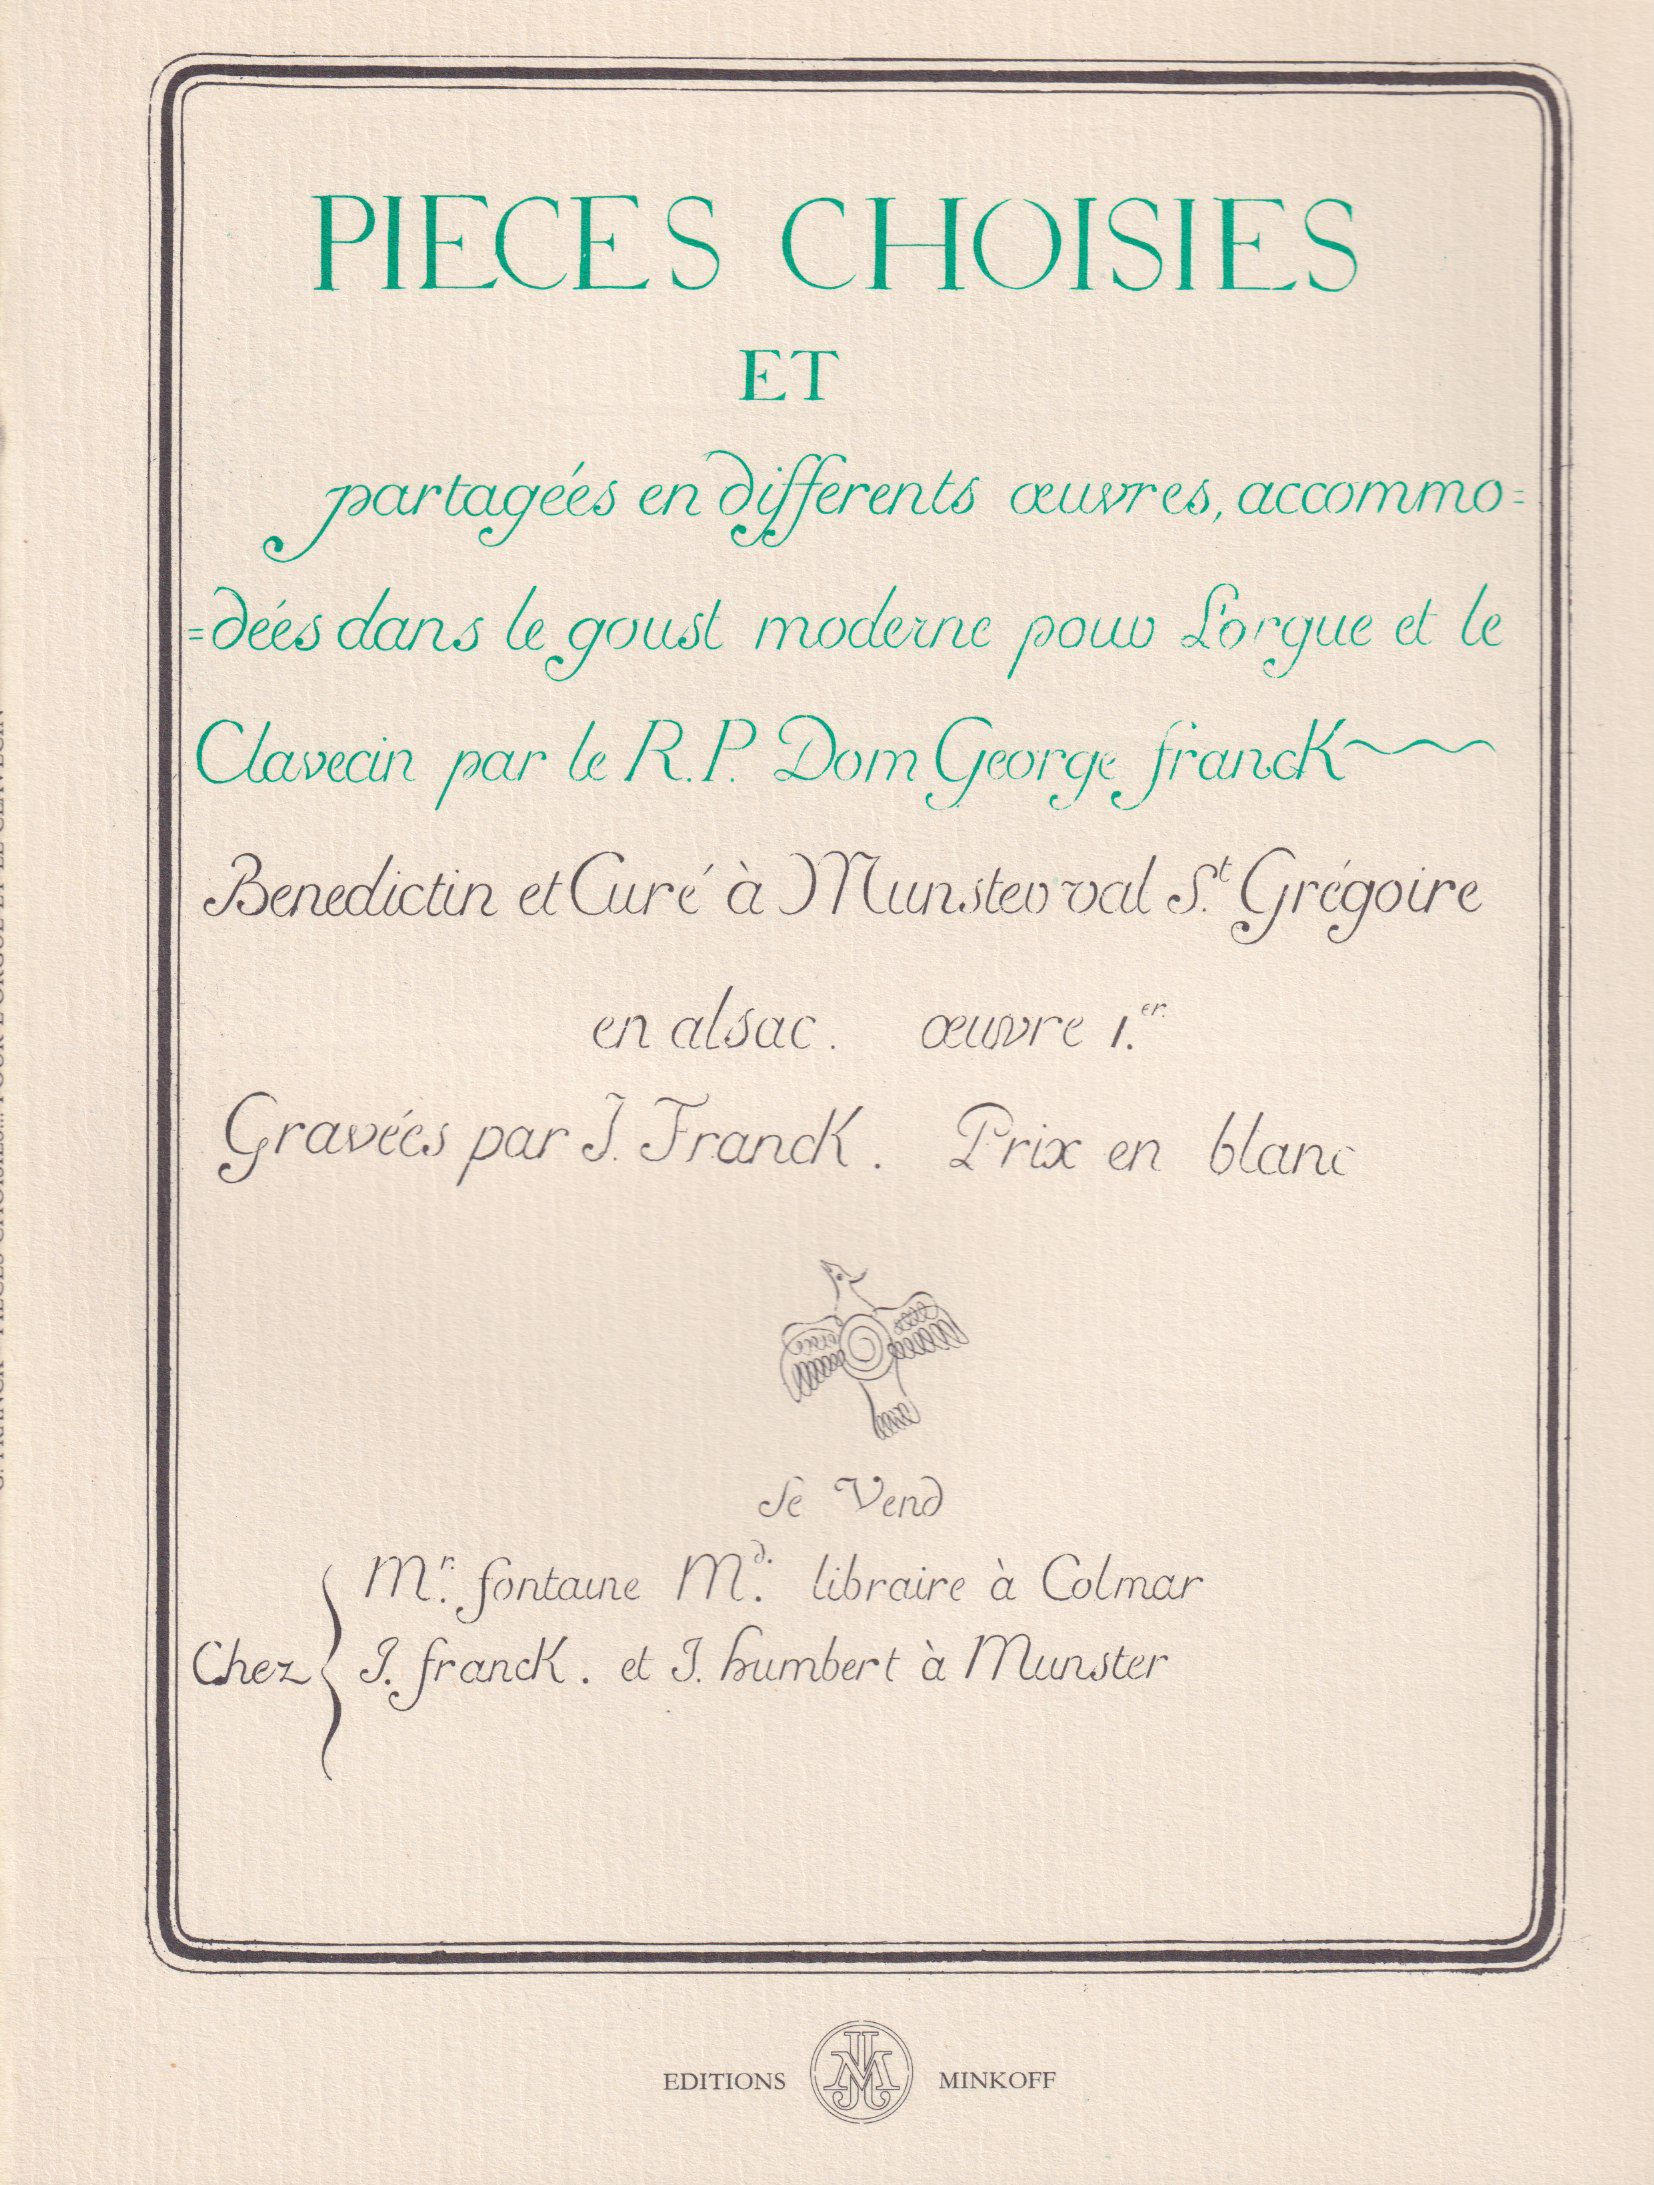 PIECES CHOISIES
ET
partagéés en differents œuvres, accommo=
=déés dans le goust moderne pour L'orgue et le
Clavecin par le R. P. Dom George franck
Benedictin et Curé à Munster val S.t Grégoire
en alsac. œuvre 1.er
Gravéés par J. Franck. Prix en blanc
Se Vend
Chez
M.r fontaine M.d libraire à Colmar
J. franck. et J. humbert à Munster
EDITIONS MINKOFF